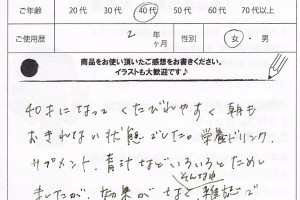 ご年齢 20代 30代 40代 50代 60代 70代以上
ご使用歴 2年 ヶ月 性別 女・男
商品をお使い頂いたご感想をお書きください。
イラストも大歓迎です♪
40才になって くたびれやすく 朝も
おきれない状態でした。栄養ドリンク、
サプメント、青汁などいろいろとためし
そんな中
ましたが、効果がなく、雑誌で